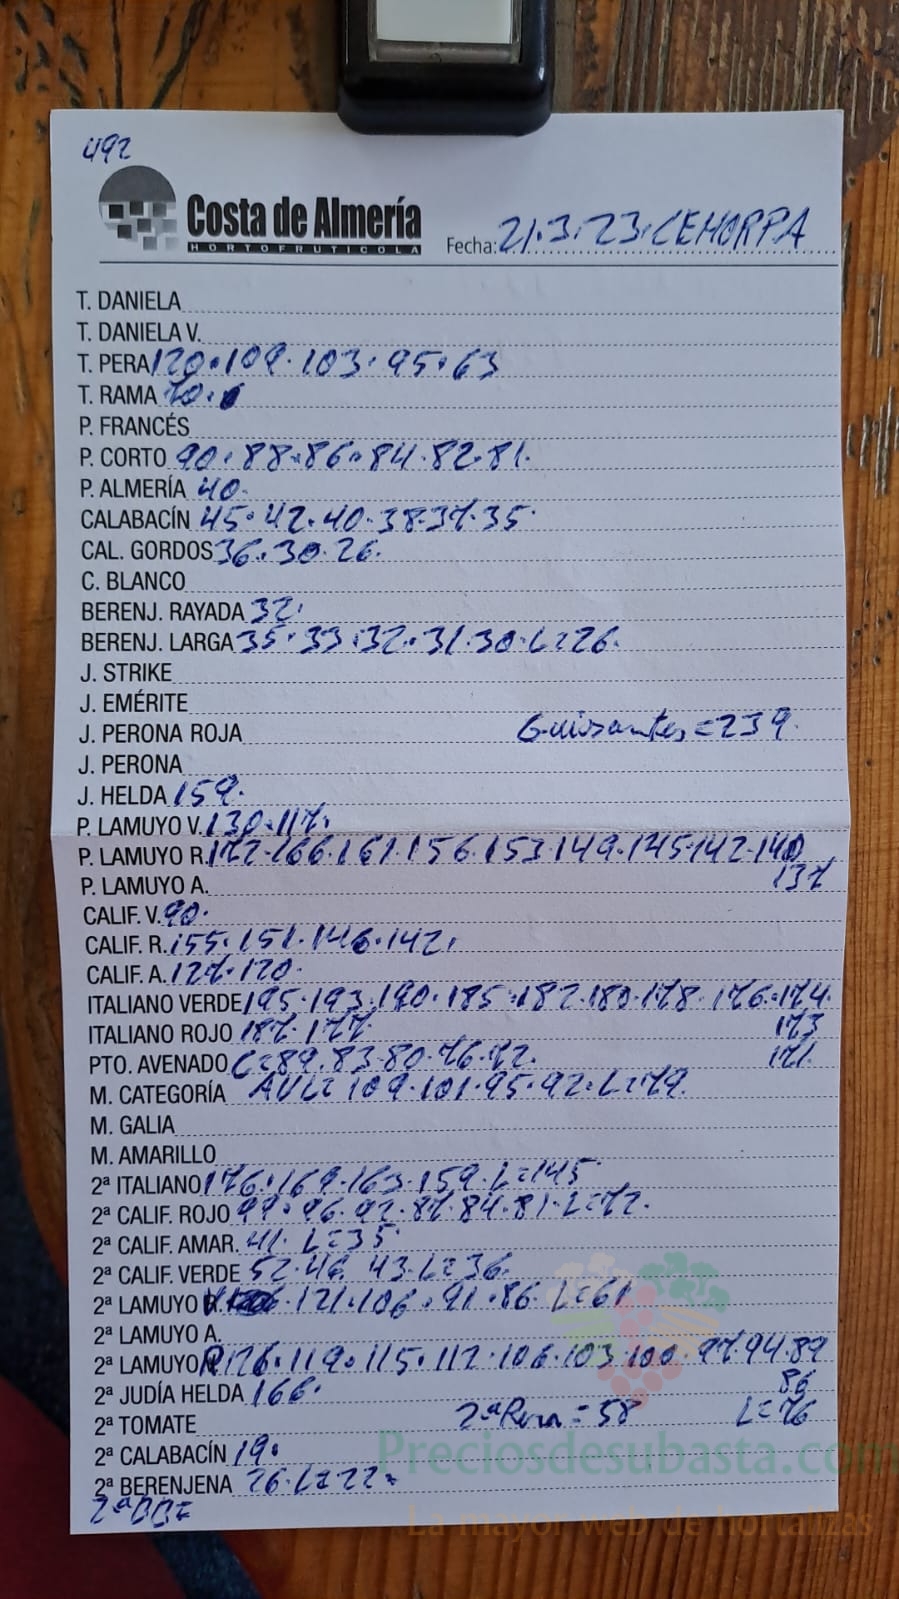 492
Costa de Almería
HORTOFRUTICOLA
Fecha: 21.3.23. CEHORPA
T. DANIELA
T. DANIELA V.
T. PERA 120.109.103.95.63
T. RAMA 70.
P. FRANCÉS
P. CORTO 90.88.86.84.82.81.
P. ALMERÍA 40.
CALABACÍN 45.42.40.38.37.35.
CAL. GORDOS 36.30.26.
C. BLANCO
BERENJ. RAYADA 32.
BERENJ. LARGA 35.33.32.31.30.L=26.
J. STRIKE
J. EMÉRITE
J. PERONA ROJA Guisantes=239.
J. PERONA
J. HELDA 159.
P. LAMUYO V. 130.117.
P. LAMUYO R. 172.166.161.156.153.149.145.142.140
P. LAMUYO A. 137
CALIF. V. 90.
CALIF. R. 155.151.146.142.
CALIF. A. 127.120.
ITALIANO VERDE 195.193.190.185.182.180.178.176.174.
ITALIANO ROJO 187.177. 173
PTO. AVENADO C=89.83.80.76.72. 171.
M. CATEGORÍA AVL=109.101.95.92.L=79.
M. GALIA
M. AMARILLO
2ª ITALIANO 176.169.163.159.L=145
2ª CALIF. ROJO 99.96.92.87.84.81.L=72.
2ª CALIF. AMAR. 41. L=35
2ª CALIF. VERDE 52.46. 43.L=36.
2ª LAMUYO 121.106.91.86. L=61
2ª LAMUYO A.
2ª LAMUYO R 126.119.115.112.106.103.100.97.94.89
2ª JUDÍA HELDA 166. 86
2ª TOMATE 2ª Pera=58 L=76
2ª CALABACÍN 19.
Preciosdesubasta.com
2ª BERENJENA 26.L=22=
La mayor web de hortalizas